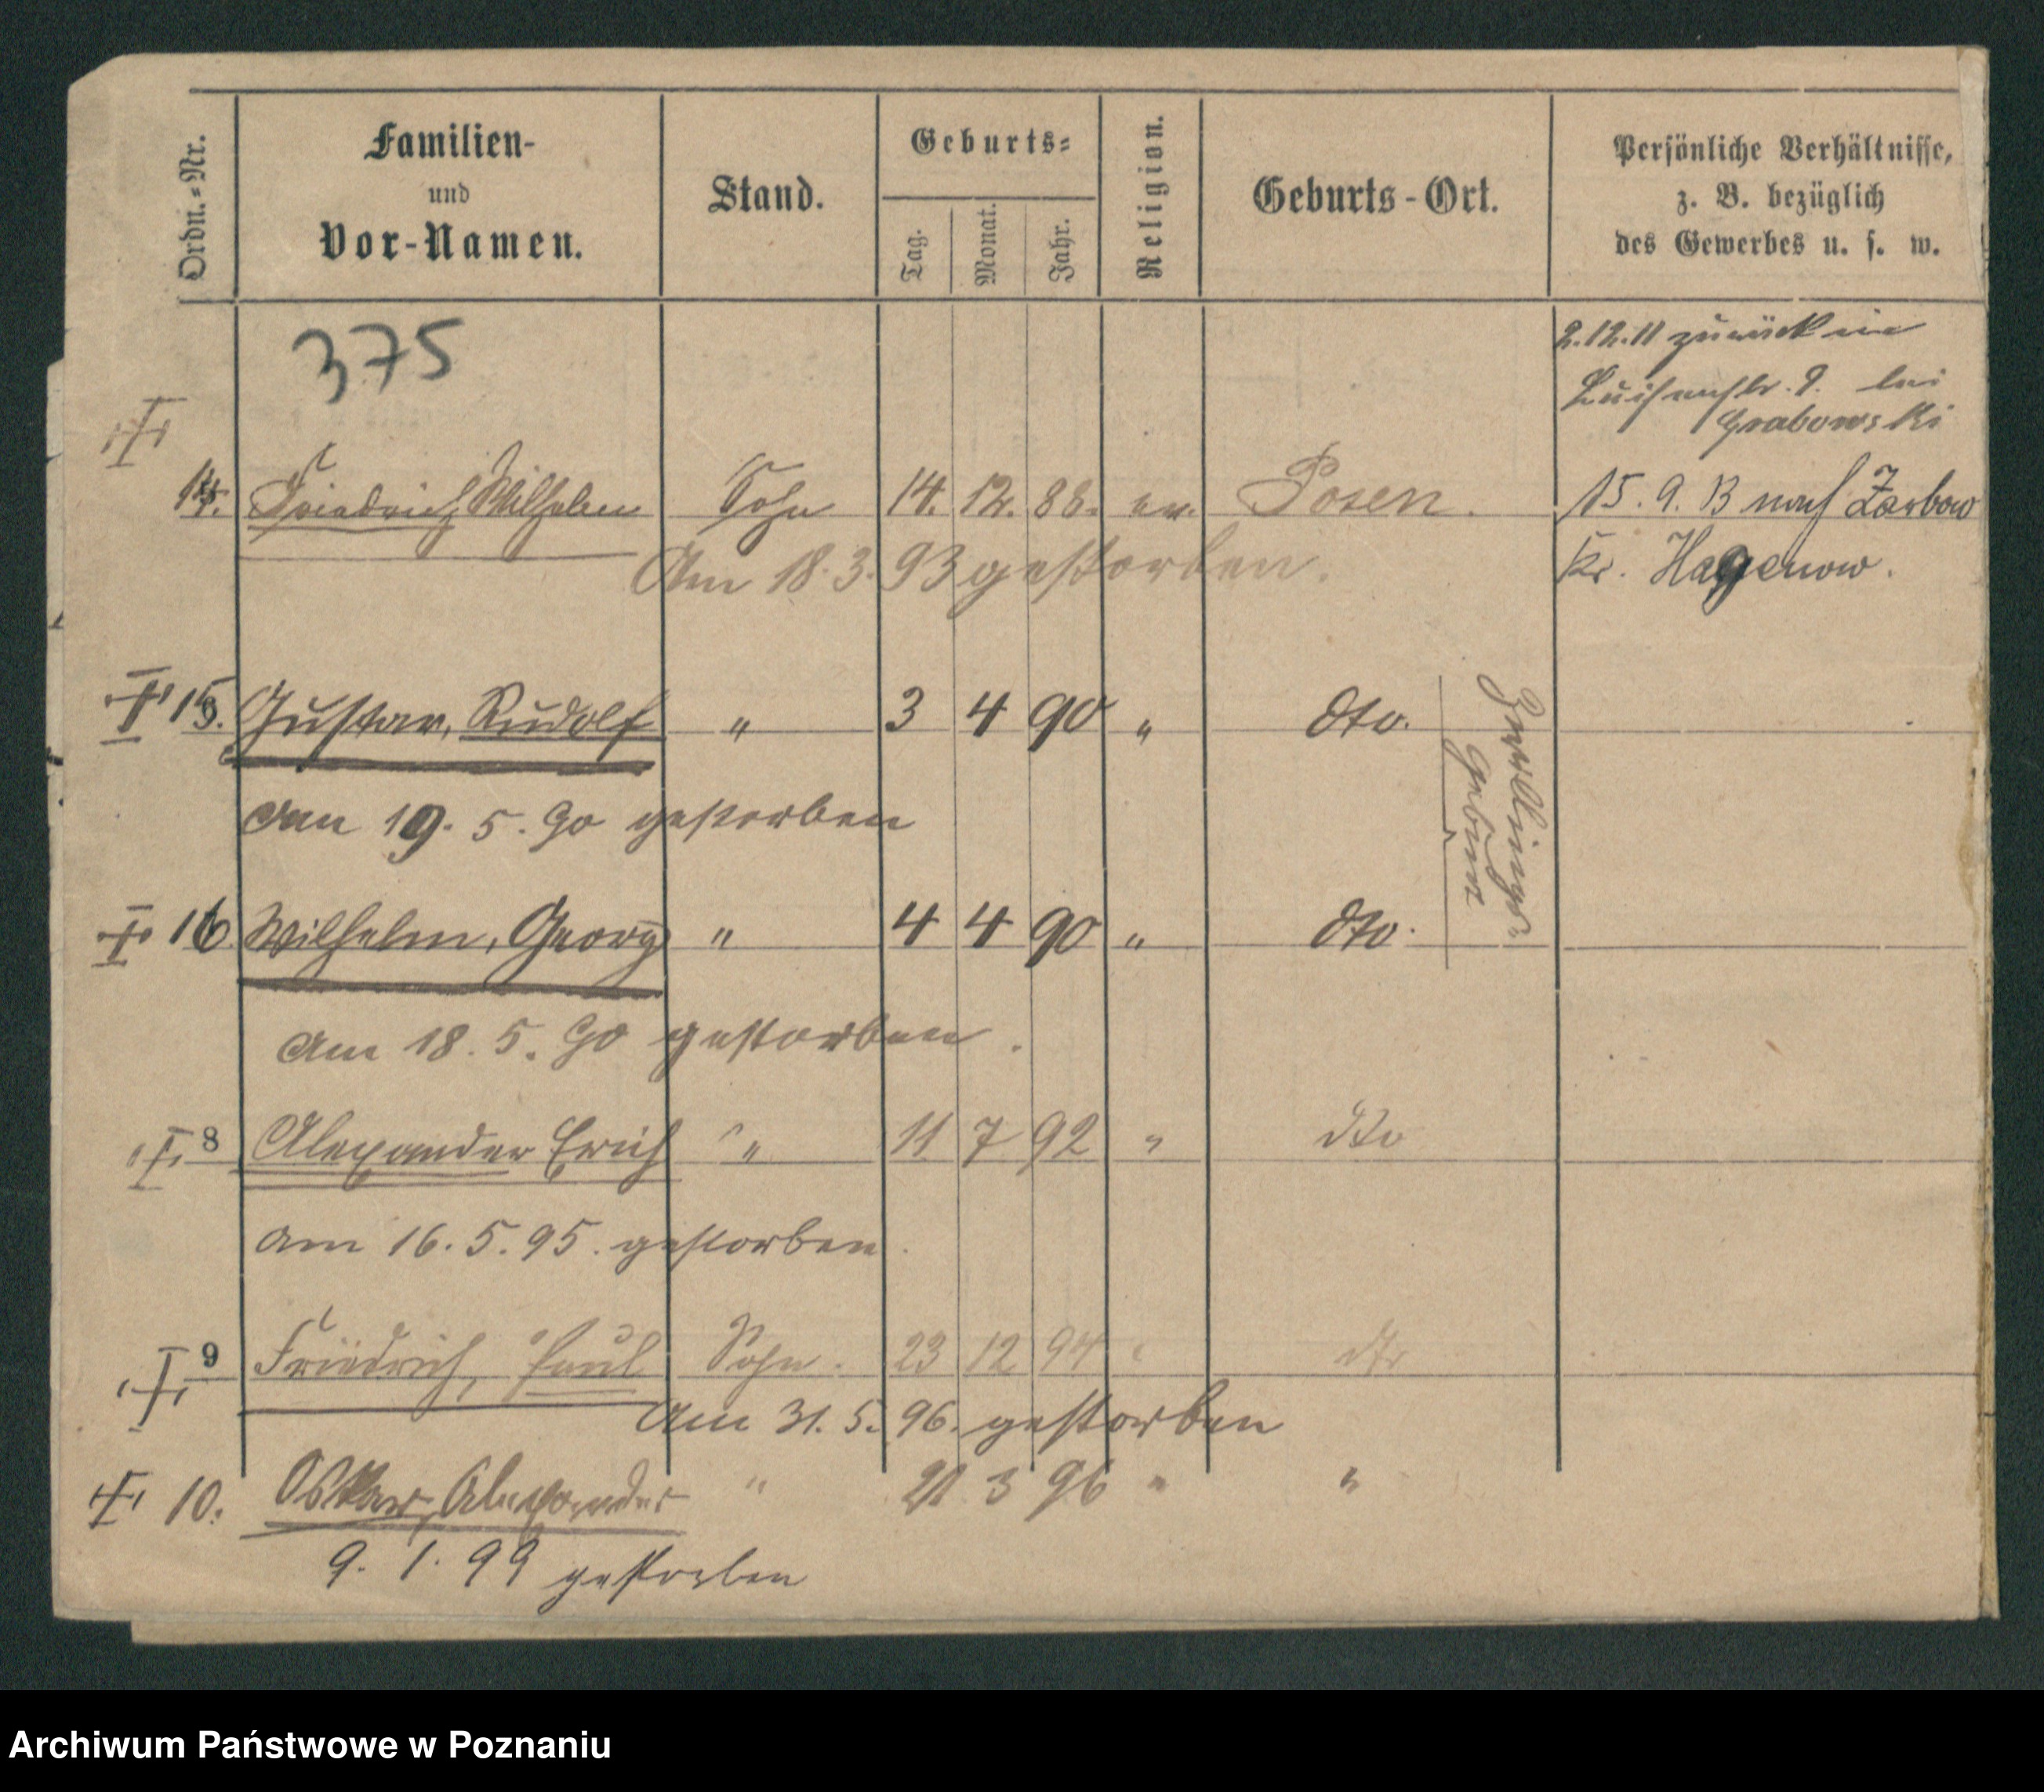 Ordn.-Nr.
Familien-
und
Vor-Namen.
Stand.
Geburts-
Tag.
Monat.
Jahr.
Religion.
Geburts-Ort.
Persönliche Verhältnisse,
z. B. bezüglich
des Gewerbes u. s. w.
375
2.12.11 zurück in
Luisenstr. 9. bei
Grabowski
14. Friedrich Wilhelm Sohn 14. 12. 88. ev. Posen. 15. 9. 13 nach Zarbow
Kr. Hagenow.
Am 18.3.93 gestorben.
15. Gustav, Rudolf " 3 4 90 " dto.
Zwillings-
geburt
Am 19.5.90 gestorben
16. Wilhelm, Georg " 4 4 90 " dto.
Am 18.5.90 gestorben.
8 Alexander Erich " 11 7 92 " dto
am 16.5.95. gestorben.
9 Friedrich, Paul Sohn. 23 12 94 " dto
Am 31.5.96. gestorben
10. Oskar, Alexander " 21 3 96 " "
9. 1. 99 gestorben
Archiwum Państwowe w Poznaniu